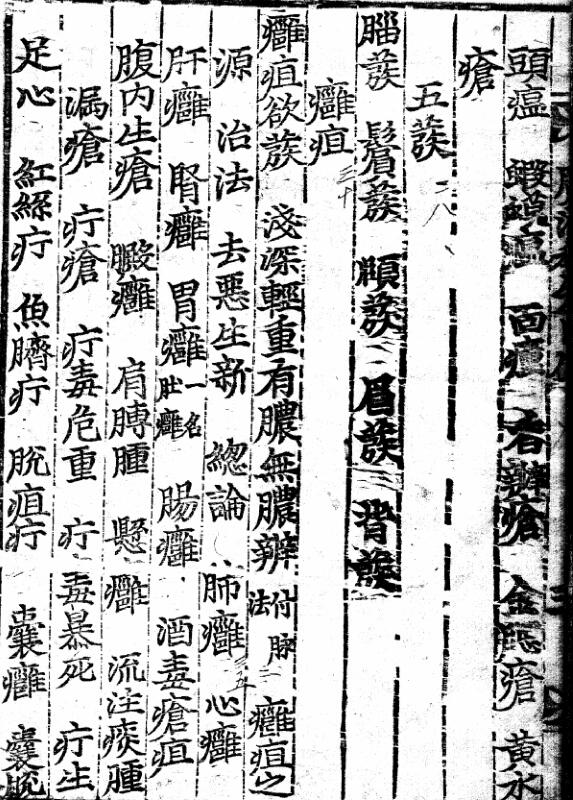 頭瘟 蝦蟆瘟 面瘡 唇瓣瘡 金絲瘡 黃水
瘡
五䯻 二八
腦䯻 鬢䯻 眉䯻 背䯻
癰疽 三十
癰疽欲䯻 淺深輕重有膿無膿辨 付脉法 癰疽之
源 治法 去惡生新 總論 肺癰 心癰
肝癰 腎癰 胃癰 一名肚癰 腸癰 酒毒瘡疽
腹內生瘡 癰 肩膊腫 懸癰 流注痰腫
漏瘡 疔瘡 疔毒危重 疔毒暴死 疔生
足心 紅絲疔 魚臍疔 脫疽疔 囊癰 囊脫